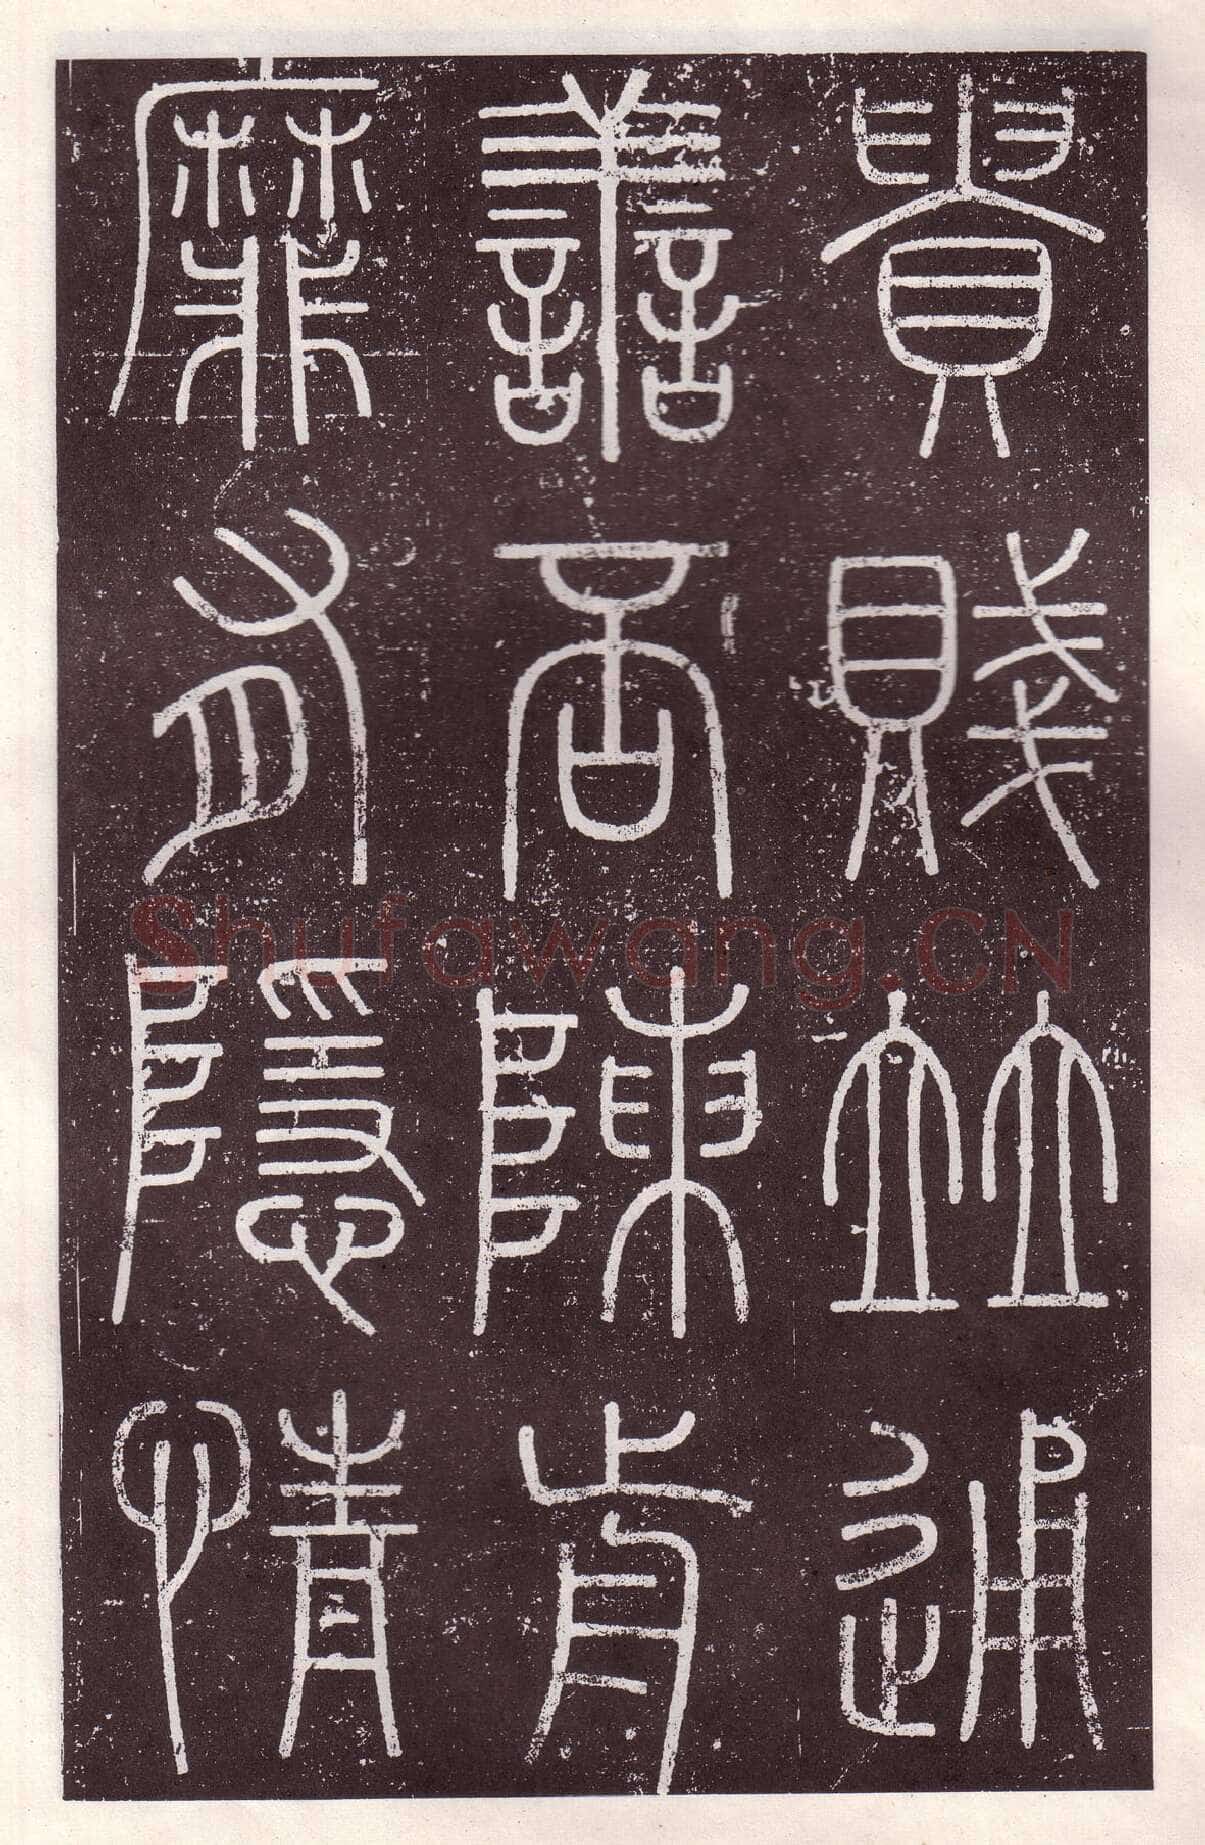 貴賤並通
善否陳前
靡有隱情
Shufawang.CN